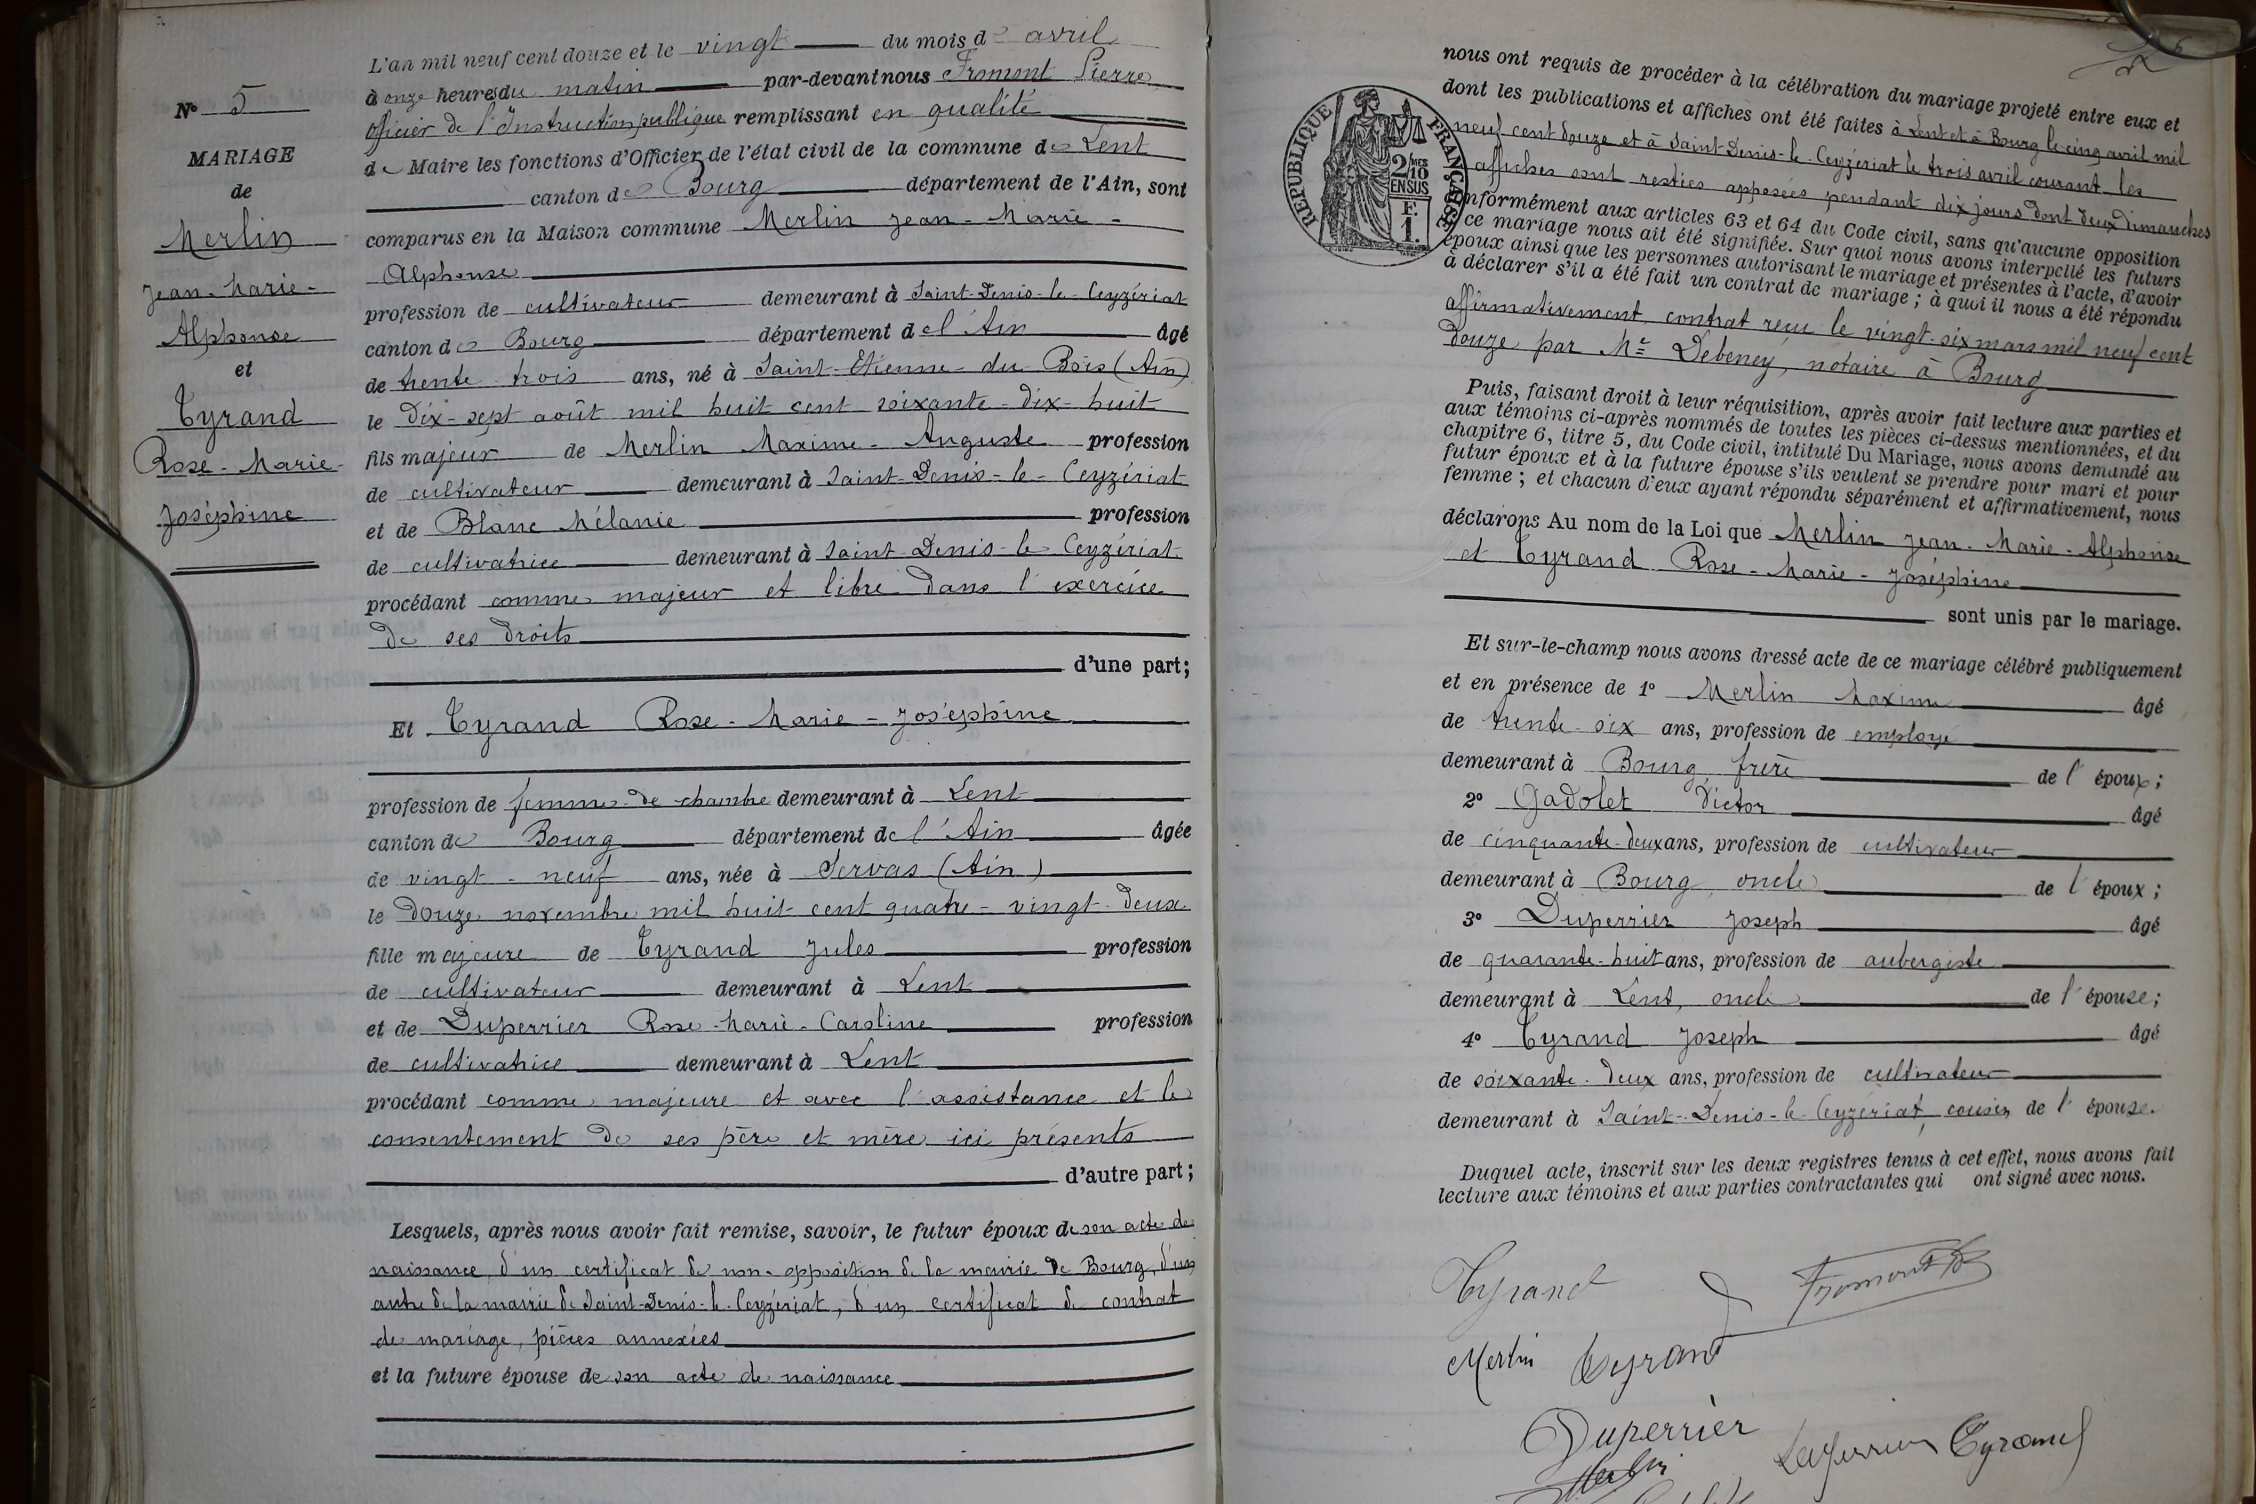 L'an mil neuf cent douze et le vingt du mois de avril
à onze heures du matin par-devant nous Fromont Pierre
officier de l'Instruction publique remplissant en qualité
de Maire les fonctions d'Officier de l'état civil de la commune de Lent
canton de Bourg département de l'Ain, sont
comparus en la Maison commune Merlin Jean-Marie-
Alphonse
profession de cultivateur demeurant à Saint-Denis-le-Ceyzériat
canton de Bourg département de l'Ain âgé
de trente trois ans, né à Saint-Etienne-du-Bois (Ain)
le dix-sept août mil huit cent soixante-dix-huit
fils majeur de Merlin Maxime-Auguste profession
de cultivateur demeurant à Saint-Denis-le-Ceyzériat
et de Blanc Mélanie profession
de cultivatrice demeurant à Saint-Denis-le Ceyzériat
procédant comme majeur et libre dans l'exercice
de ses droits
d'une part;
Et Tyrand Rose-Marie-Joséphine
profession de femme de chambre demeurant à Lent
canton de Bourg département de l'Ain âgée
de vingt-neuf ans, née à Servas (Ain)
le douze novembre mil huit cent quatre-vingt-deux
fille majeure de Tyrand Jules profession
de cultivateur demeurant à Lent
et de Duperrier Rose-Marie-Caroline profession
de cultivatrice demeurant à Lent
procédant comme majeure et avec l'assistance et le
consentement de ses père et mère ici présents
d'autre part;
Lesquels, après nous avoir fait remise, savoir, le futur époux de son acte de
naissance, d'un certificat de non-opposition de la mairie de Bourg, d'un
autre de la mairie de Saint-Denis-le-Ceyzériat, d'un certificat de contrat
de mariage, pièces annexées
et la future épouse de son acte de naissance
N° 5
MARIAGE
de
Merlin
Jean-Marie-
Alphonse
et
Tyrand
Rose-Marie-
Joséphine
nous ont requis de procéder à la célébration du mariage projeté entre eux et
dont les publications et affiches ont été faites à Lent et à Bourg le cinq avril mil
neuf cent douze et à Saint-Denis-le-Ceyzériat le trois avril courant les
affiches sont restées apposées pendant dix jours dont deux dimanches
nformément aux articles 63 et 64 du Code civil, sans qu'aucune opposition
ce mariage nous ait été signifiée. Sur quoi nous avons interpellé les futurs
époux ainsi que les personnes autorisant le mariage et présentes à l'acte, d'avoir
à déclarer s'il a été fait un contrat de mariage; à quoi il nous a été répondu
affirmativement, contrat reçu le vingt-six mars mil neuf cent
douze par Me Debeney, notaire à Bourg
Puis, faisant droit à leur réquisition, après avoir fait lecture aux parties et
aux témoins ci-après nommés de toutes les pièces ci-dessus mentionnées, et du
chapitre 6, titre 5, du Code civil, intitulé Du Mariage, nous avons demandé au
futur époux et à la future épouse s'ils veulent se prendre pour mari et pour
femme; et chacun d'eux ayant répondu séparément et affirmativement, nous
déclarons Au nom de la Loi que Merlin Jean-Marie-Alphonse
et Tyrand Rose-Marie-Joséphine
sont unis par le mariage.
Et sur-le-champ nous avons dressé acte de ce mariage célébré publiquement
et en présence de 1° Merlin Maxime âgé
de trente-six ans, profession de employé
demeurant à Bourg, frère de l'époux;
2° Gadolet Victor âgé
de cinquante-deux ans, profession de cultivateur
demeurant à Bourg, oncle de l'époux;
3° Duperrier Joseph âgé
de quarante-huit ans, profession de aubergiste
demeurant à Lent, oncle de l'épouse;
4° Tyrand Joseph âgé
de soixante-deux ans, profession de cultivateur
demeurant à Saint-Denis-le-Ceyzériat, cousin de l'épouse.
Duquel acte, inscrit sur les deux registres tenus à cet effet, nous avons fait
lecture aux témoins et aux parties contractantes qui ont signé avec nous.
Tyrand Fromont
Merlin Tyrand
Duperrier
Merlin Tyrand
REPUBLIQUE FRANÇAISE
2/10 MES
EN SUS
F.
1.